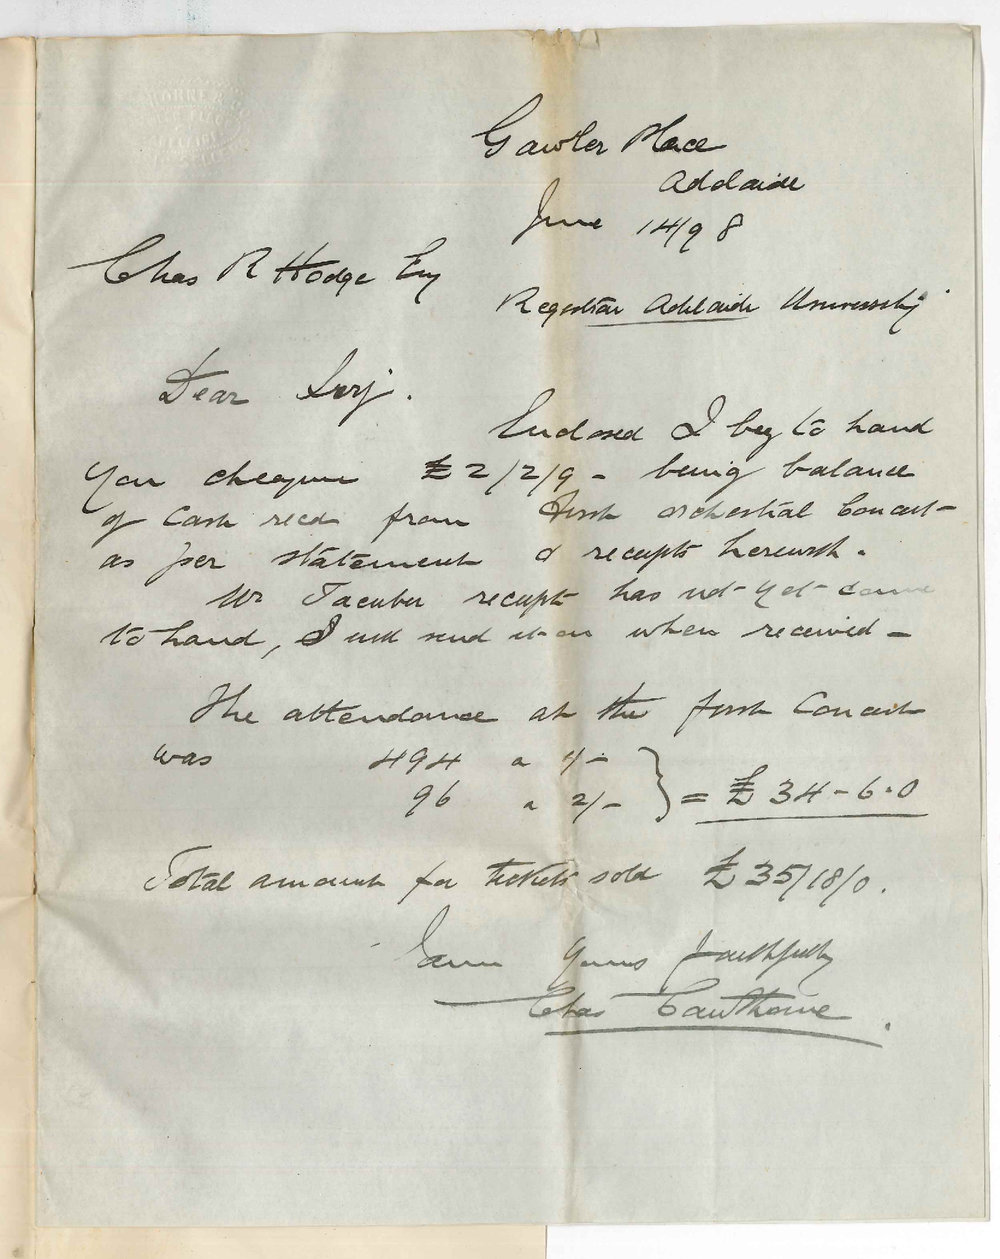 Gawler Place
Adelaide
June 14/98
Chas R Hodge Esq
Registrar Adelaide University
Dear Sir,
Enclosed I beg to hand
you cheque £2/2/9 - being balance
of Cash recd from first orchestral Concert -
as per statement & receipts herewith.
Mr receipt has not yet come
to hand, I will send it on when received -
The attendance at the first Concert
was 494 a 1/-
96 a 2/- } = £34-6.0
Total amount for tickets sold £35/18/0.
I am Yours faithfully
Chas Cawthorne.